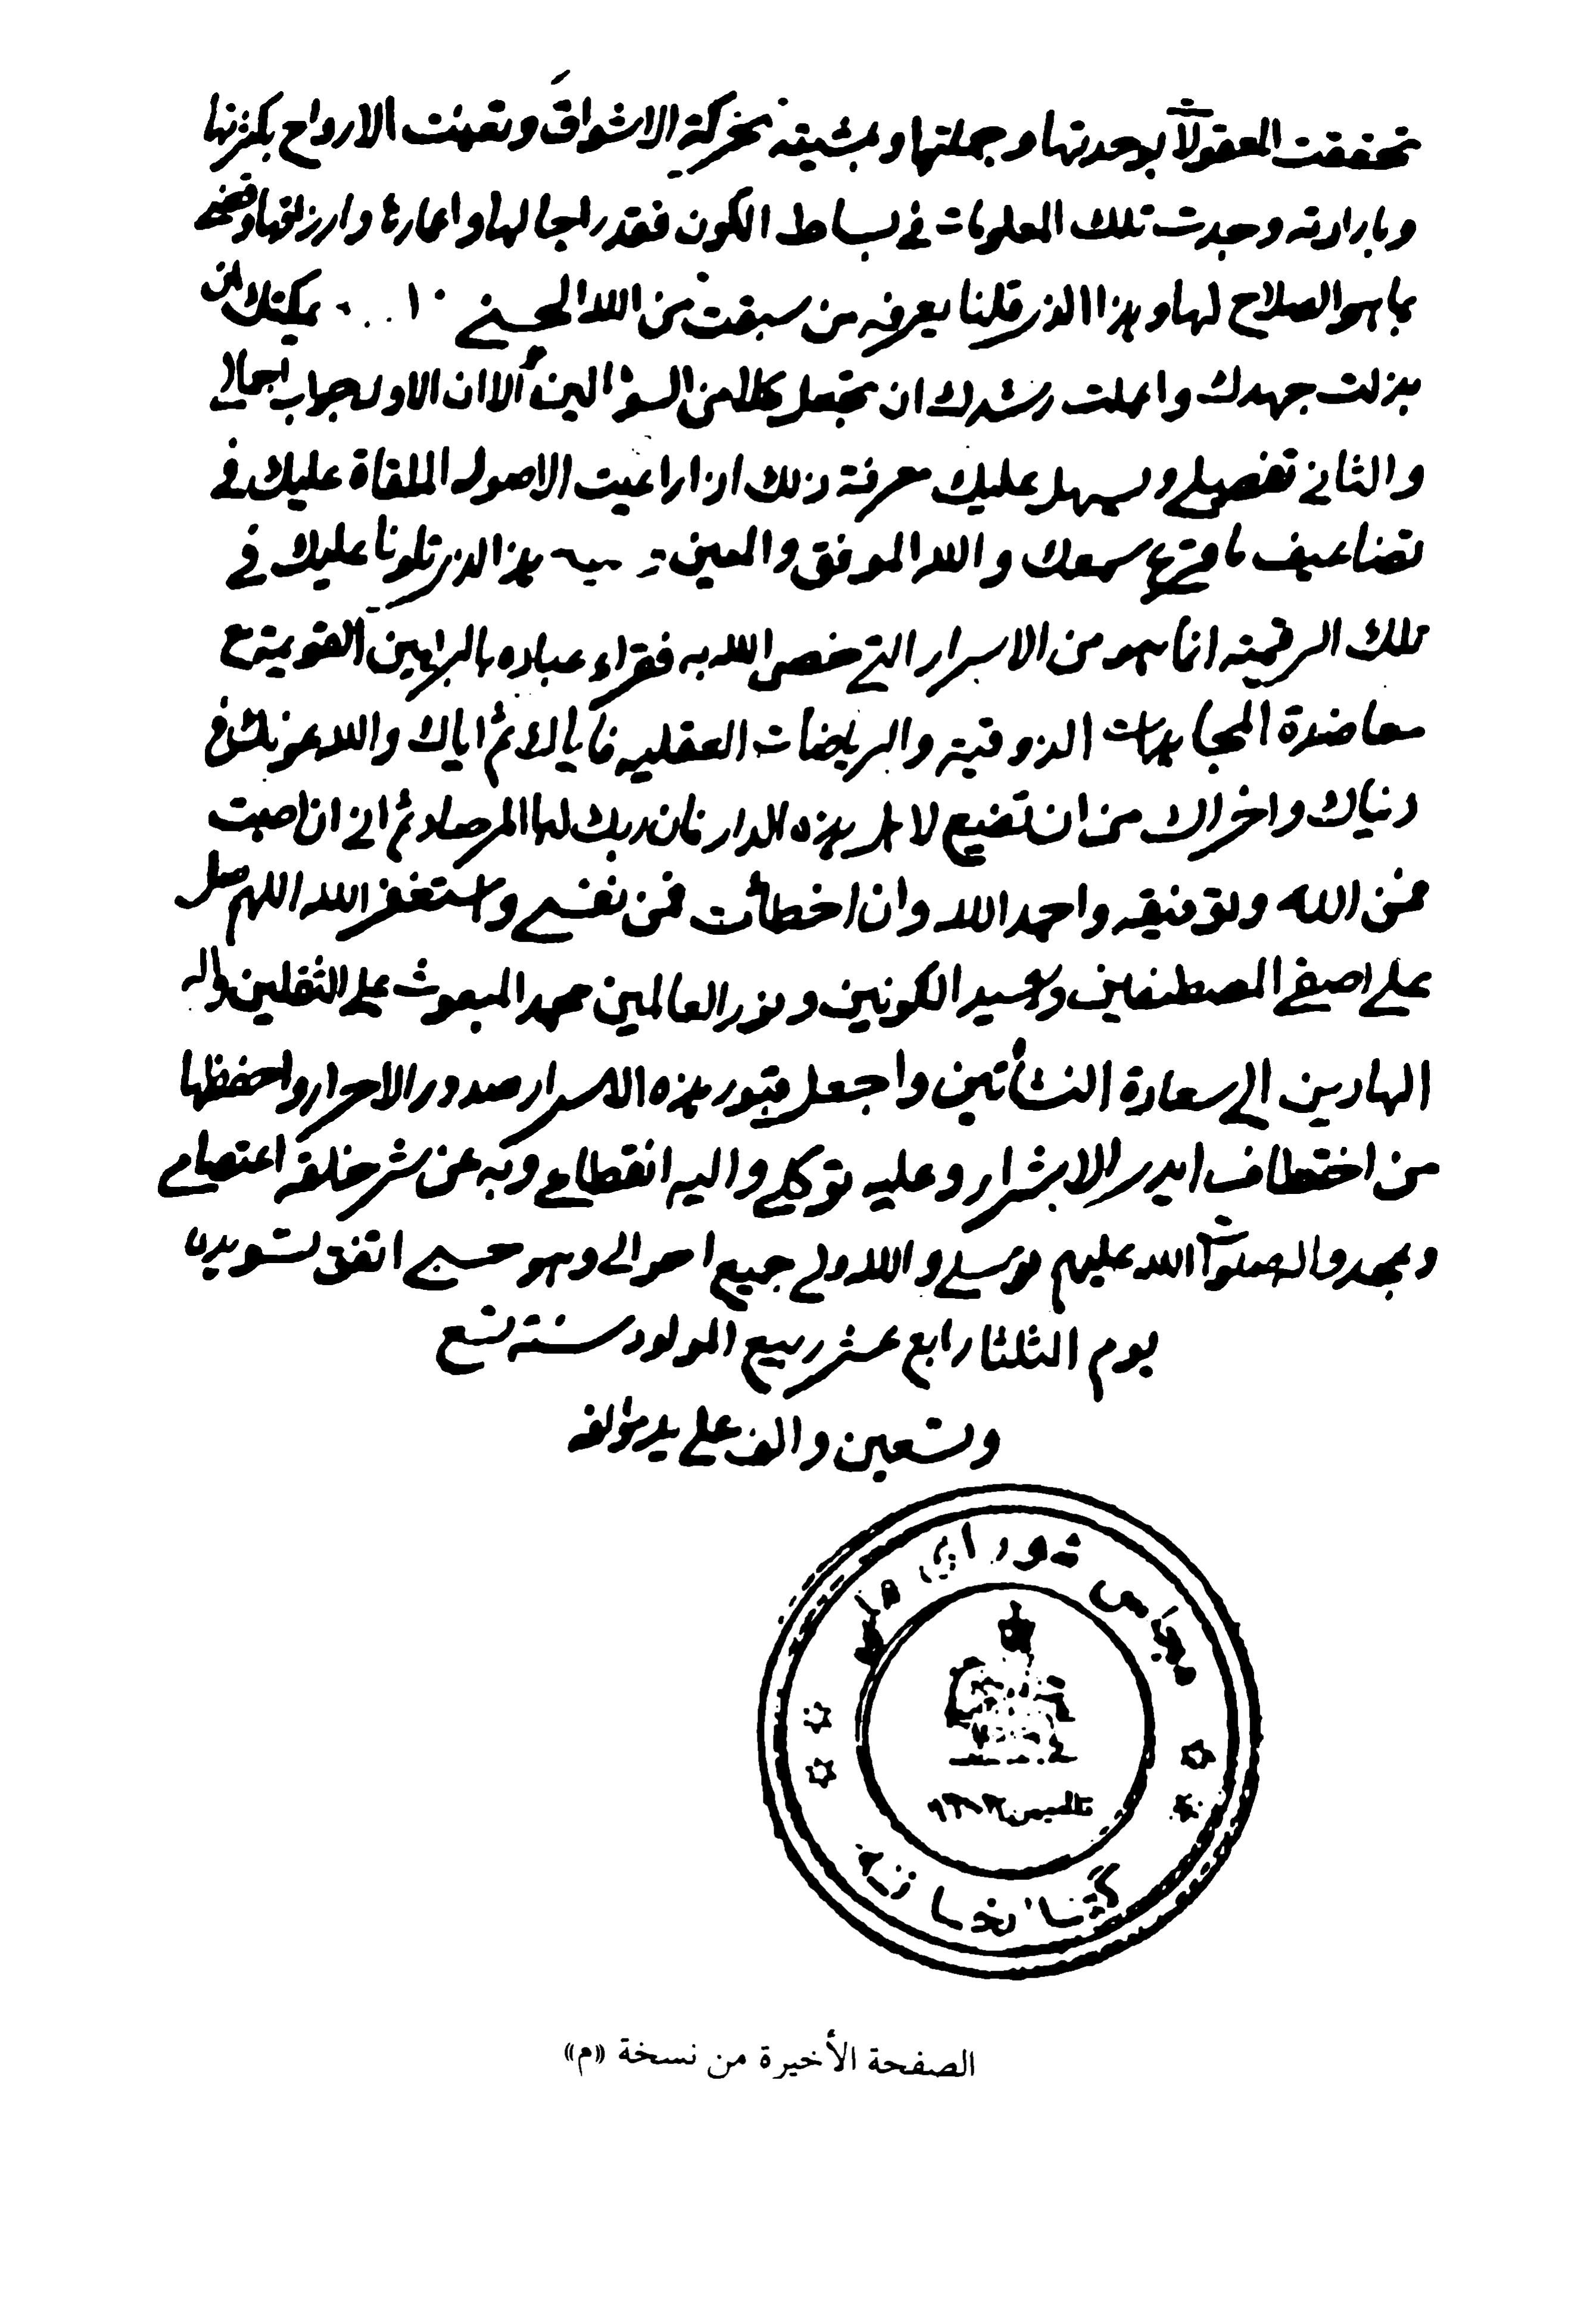 تحققت المعقولات بوحدتها وجملتها وبمشيته تحركت الاشواق وتعينت الارواح بكثرتها
وبارادته وجدت تلك المعلومات في بساط الكون فقدر اجالها واعمارها وارزاقها وقضى
بما هو الصلاح لها وهذا الذي قلنا يعرفه من سبقت من الله الحسنى يمكنك ان
بذلت جهدك واعملت رشدك ان تجعل كلا من السؤالين الا ان الاول جواب اجمالي
والثاني تفصيلي ويسهل عليك معرفة ذلك اذا راعيت الاصول الملقاة عليك في
تضاعيف ما قرع سمعك والله الموفق والمعين هذا الذي تلونا عليك في
تلك الرقيمة انما هو من الاسرار التي خص الله به فقراء عباده بالبراهين القويمة مع
معاضدة المجاهدات الذوقية والرياضات العقلية فاياك ثم اياك والله عونك في
دنياك واخراك من ان تضيع لاهل هذه الدار فان ربك لبا المرصاد ثم اني ان اصبت
فمن الله وتوفيقه واحمد الله وان اخطأت فمن نفسي واستغفر الله اللهم صل
على اصفى المصطفين وسيد الكونين ونور العالمين محمد المبعوث على الثقلين واله
الهادين الى سعادة النشأتين واجعل قبور هذه الاسرار صدور الاحرار واحفظها
من اختطاف ايدي الاشرار وعليه توكلي واليه انقطاعي وبه عن شر خلقه اعتصامي
وبمحمد واله صلوات الله عليهم توسلي والله ولي جميع احوالي وهو حسبي اتفق تسويده
يوم الثلثا رابع عشر ربيع المولود سنة تسع
وتسعين والف على يد مؤلفه
مجلس شورای ملی
تأسیس ۱۳۰۲
کتابخانه
الصفحة الأخيرة من نسخة «م»